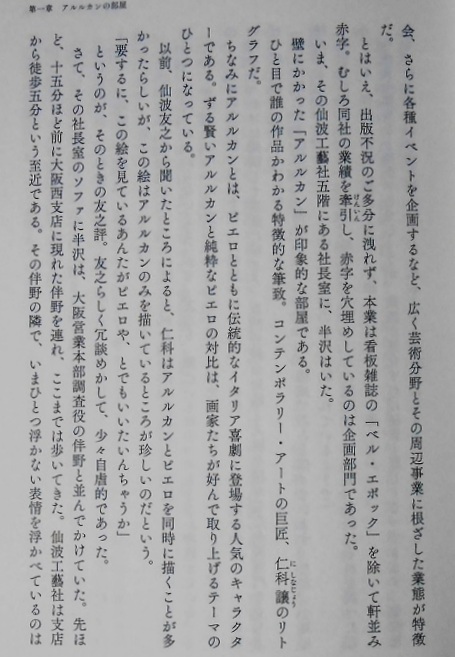 第一章 アルルカンの部屋
会、さらに各種イベントを企画するなど、広く芸術分野とその周辺事業に根ざした業態が特徴
だ。
とはいえ、出版不況のご多分に洩れず、本業は看板雑誌の「ベル・エポック」を除いて軒並み
赤字。むしろ同社の業績を牽引し、赤字を穴埋めしているのは企画部門であった。
いま、その仙波工藝社五階にある社長室に、半沢はいた。
壁にかかった「アルルカン」が印象的な部屋である。
ひと目で誰の作品かわかる特徴的な筆致。コンテンポラリー・アートの巨匠、仁科譲のリト
グラフだ。
ちなみにアルルカンとは、ピエロとともに伝統的なイタリア喜劇に登場する人気のキャラクタ
ーである。ずる賢いアルルカンと純粋なピエロの対比は、画家たちが好んで取り上げるテーマの
ひとつになっている。
以前、仙波友之から聞いたところによると、仁科はアルルカンとピエロを同時に描くことが多
かったらしいが、この絵はアルルカンのみを描いているところが珍しいのだという。
「要するに、この絵を見ているあんたがピエロや、とでもいいたいんちゃうか」
というのが、そのときの友之評。友之らしく冗談めかして、少々自虐的であった。
さて、その社長室のソファに半沢は、大阪営業本部調査役の伴野と並んでかけていた。先ほ
ど、十五分ほど前に大阪西支店に現れた伴野を連れ、ここまでは歩いてきた。仙波工藝社は支店
から徒歩五分という至近である。その伴野の隣で、いまひとつ浮かない表情を浮かべているのは